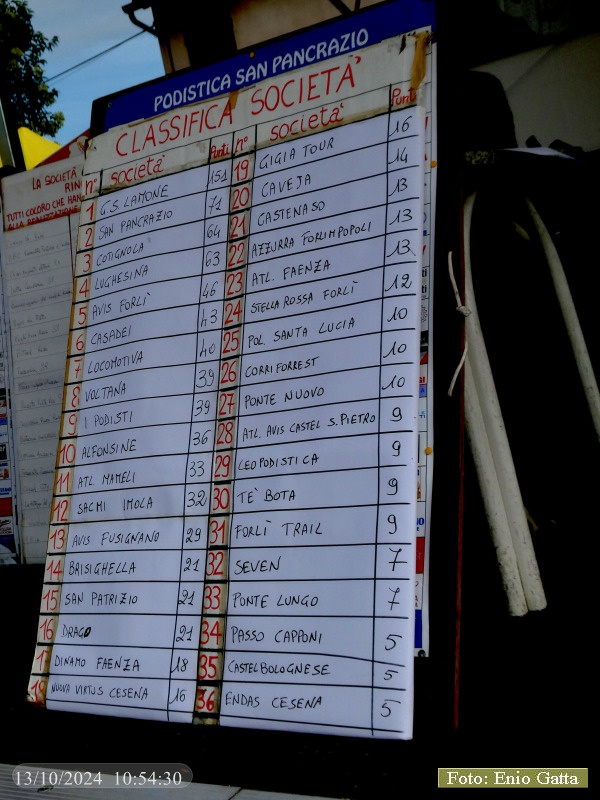 PODISTICA SAN PANCRAZIO
CLASSIFICA SOCIETA'
n° società Punti
1 G.S. LAMONE 151
2 SAN PANCRAZIO 71
3 COTIGNOLA 64
4 LUGHESINA 63
5 AVIS FORLÌ 46
6 CASADEI 43
7 LOCOMOTIVA 40
8 VOLTANA 39
9 I PODISTI 39
10 ALFONSINE 36
11 ATL MAMELI 33
12 SACMI IMOLA 32
13 AVIS FUSIGNANO 29
14 BRISIGHELLA 21
15 SAN PATRIZIO 21
16 DRAGO 21
17 DINAMO FAENZA 18
18 NUOVA VIRTUS CESENA 16
n° società Punti
19 GIGIA TOUR 16
20 CAVEJA 14
21 CASTENASO 13
22 AZZURRA FORLIMPOPOLI 13
23 ATL. FAENZA 13
24 STELLA ROSSA FORLÌ 12
25 POL. SANTA LUCIA 10
26 CORRIFORREST 10
27 PONTE NUOVO 10
28 ATL. AVIS CASTEL S. PIETRO 9
29 LEOPODISTICA 9
30 TE' BOTA 9
31 FORLÌ TRAIL 9
32 SEVEN 7
33 PONTE LUNGO 7
34 PASSO CAPPONI 5
35 CASTELBOLOGNESE 5
36 ENDAS CESENA 5
LA SOCIETÀ
RIN
TUTTI COLORO CHE HAN
ALLA REALIZZAZIONE
13/10/2024 10:54:30
Foto: Enio Gatta